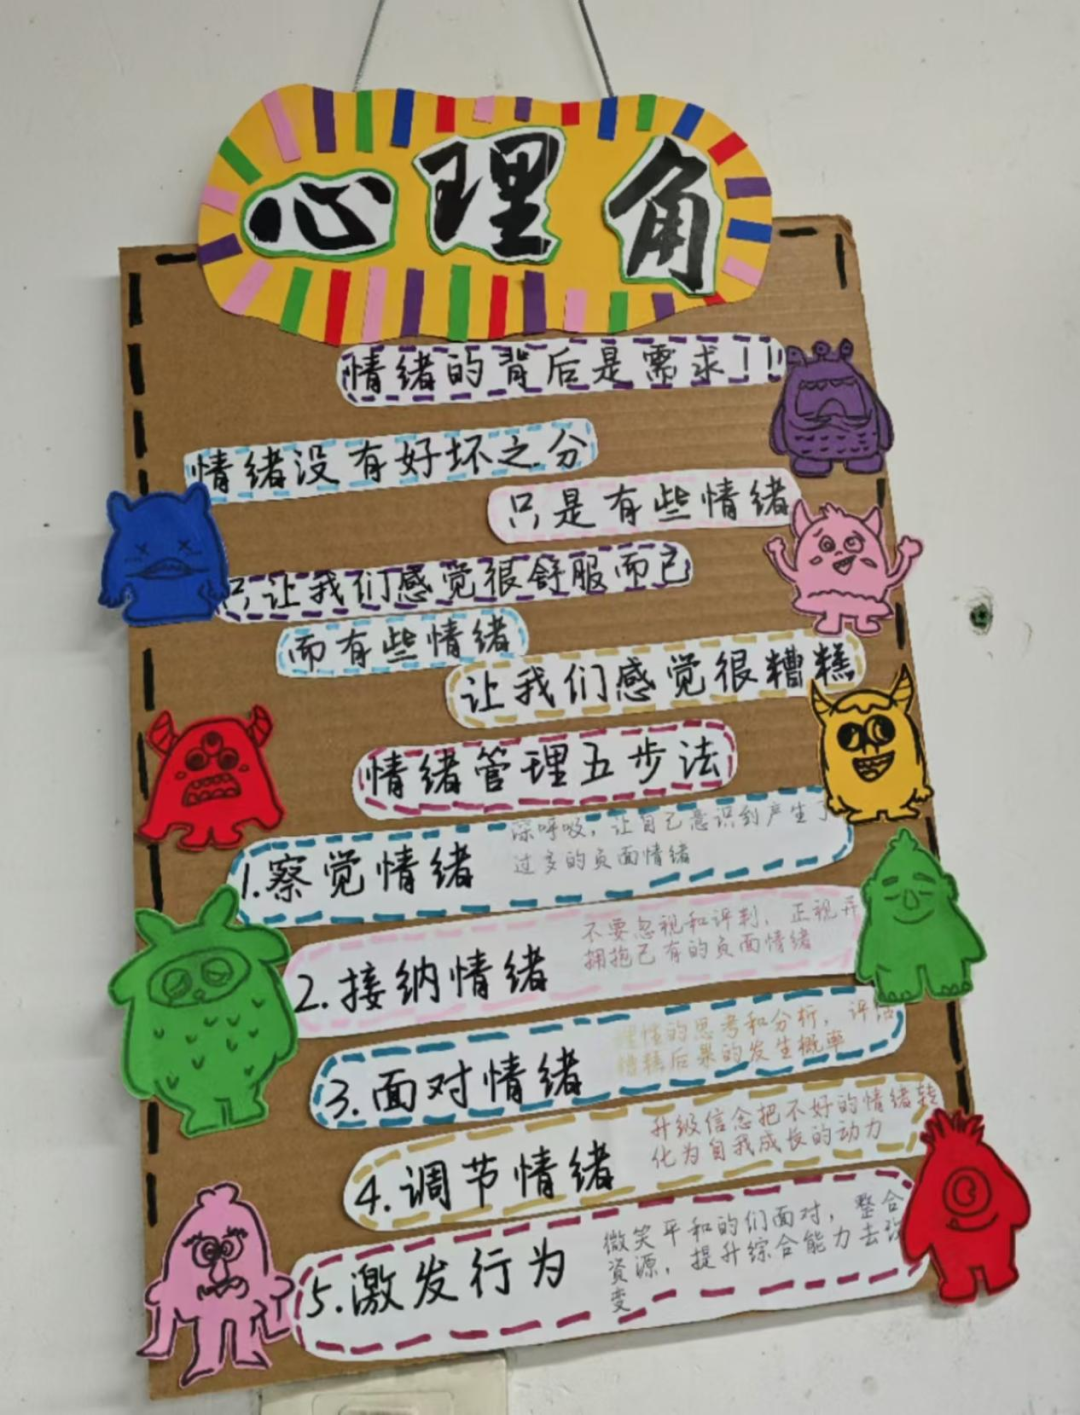 心理角
情绪的背后是需求!!
情绪没有好坏之分
只是有些情绪
只让我们感觉很舒服而已
而有些情绪
让我们感觉很糟糕
情绪管理五步法
1.察觉情绪
深呼吸，让自己意识到产生了
过多的负面情绪
2.接纳情绪
不要忽视和评判，正视并
拥抱已有的负面情绪
3.面对情绪
理性的思考和分析，评估
糟糕后果的发生概率
4.调节情绪
升级信念把不好的情绪转
化为自我成长的动力
5.激发行为
微笑平和的们面对，整合
资源，提升综合能力去改
变